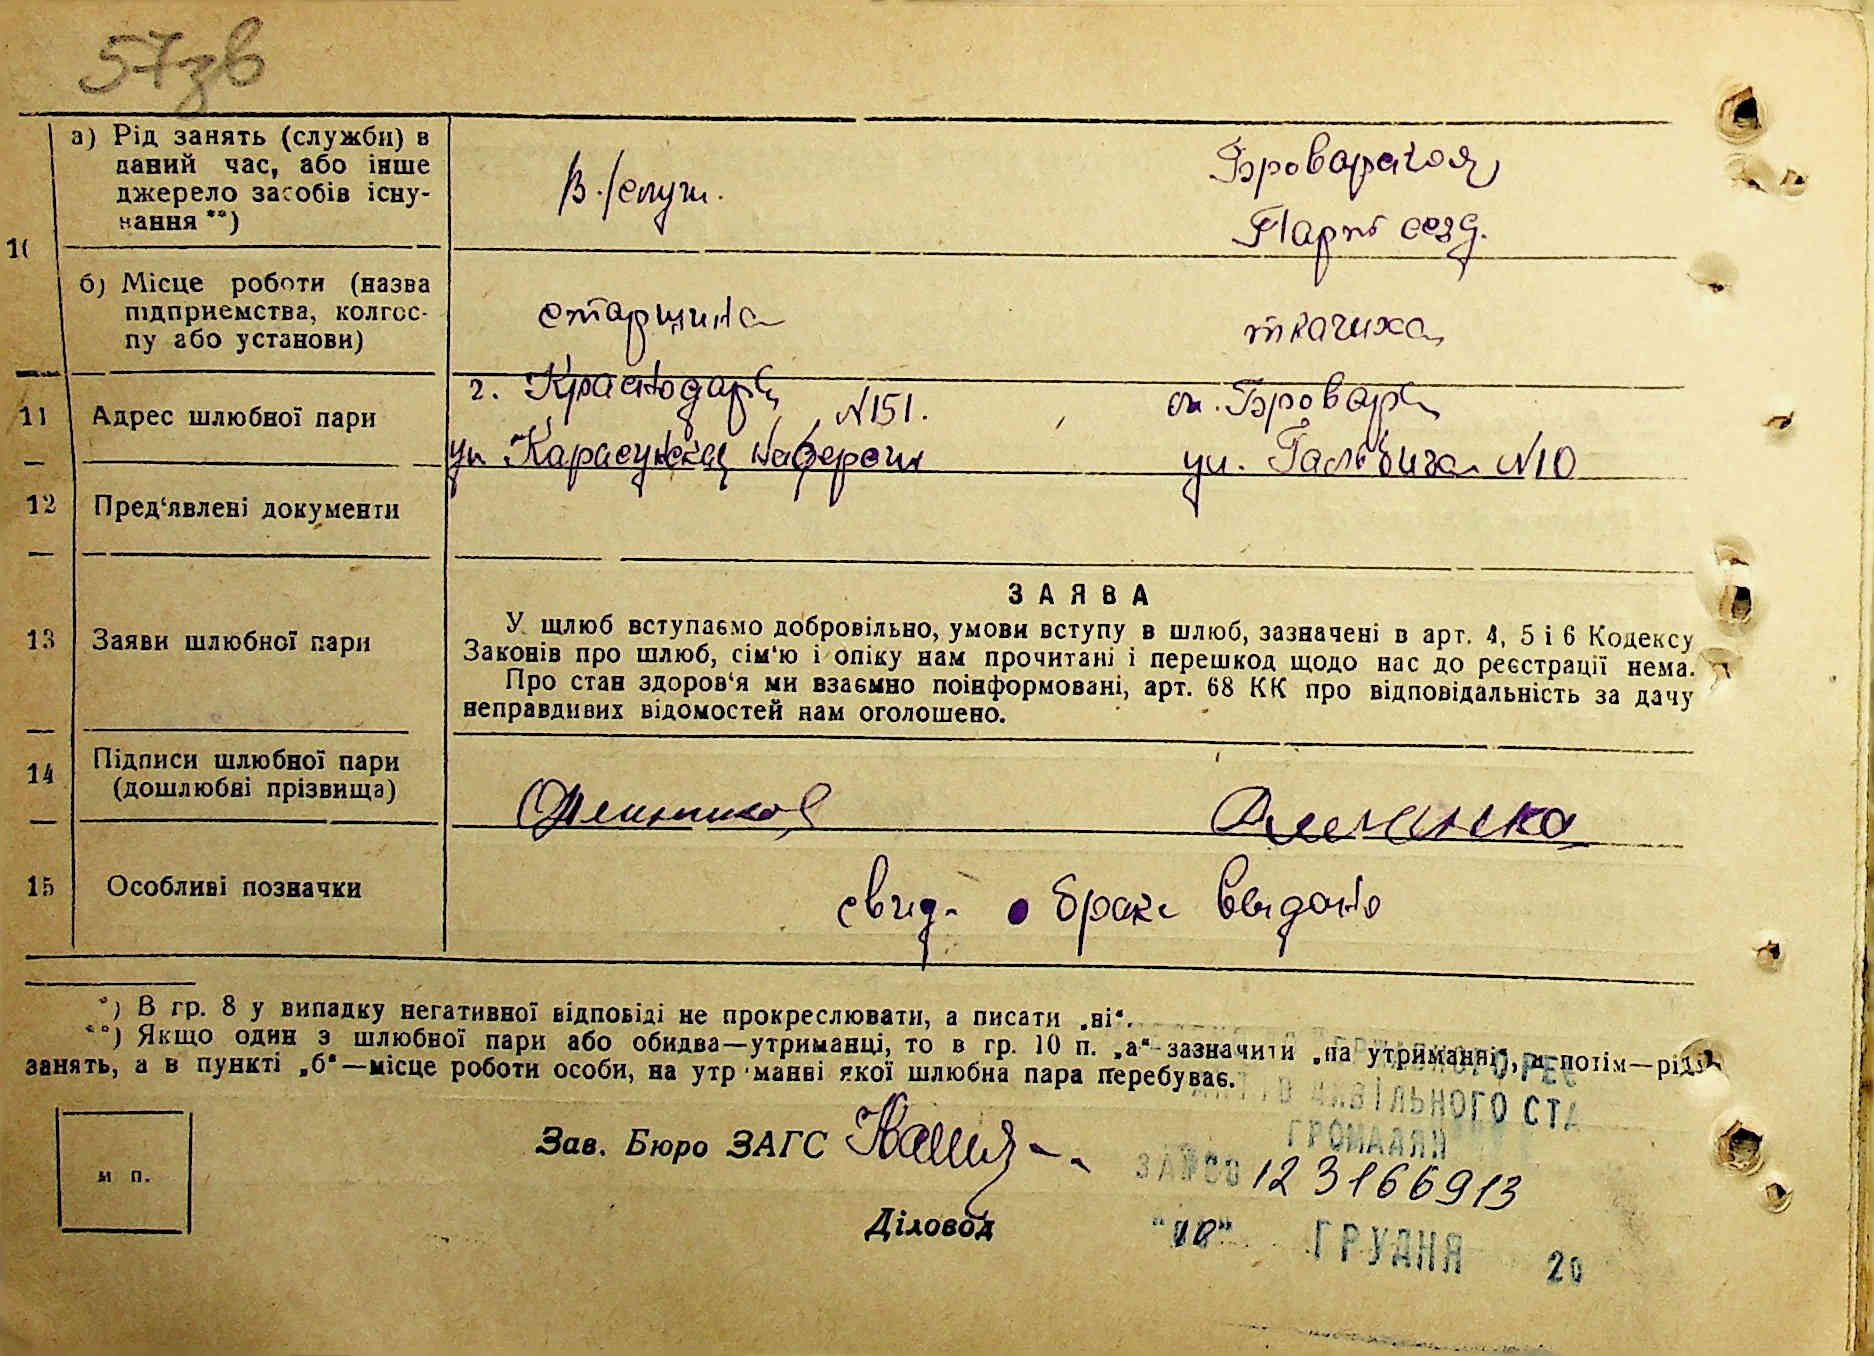 57зв
а) Рід занять (служби) в
даний час, або інше
джерело засобів існу-
вання **)
В./служ.
Броварская
10
б) Місце роботи (назва
підприємства, колгос-
пу або установи)
старшина
ткачиха
11 Адрес шлюбної пари
г. Краснодар
№151.
ул. Карасунская набереж
ст. Бровары
ул. №10
12 Пред'явлені документи
ЗАЯВА
13 Заяви шлюбної пари
У щлюб вступаємо добровільно, умови вступу в шлюб, зазначені в арт. 4, 5 і 6 Кодексу
Законів про шлюб, сім'ю і опіку нам прочитані і перешкод щодо нас до реєстрації нема.
Про стан здоров'я ми взаємно поінформовані, арт. 68 КК про відповідальність за дачу
неправдивих відомостей нам оголошено.
14 Підписи шлюбної пари
(дошлюбні прізвища)
15 Особливі позначки
свид. о браке выдано
*) В гр. 8 у випадку негативної відповіді не прокреслювати, а писати „ні“.
**) Якщо один з шлюбної пари або обидва—утриманці, то в гр. 10 п. „а“ зазначити „на утриманні“, а потім—рід
занять, а в пункті „б“—місце роботи особи, на утр манні якої шлюбна пара перебуває.
ЦИВІЛЬНОГО СТА
ГРОМАДЯН
Зав. Бюро ЗАГС
123166913
м п.
Діловод
ГРУДНЯ 20